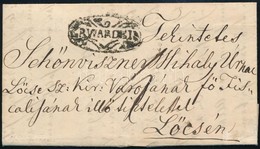 R.WARDEIN
Tekintetes
Schönviszner Mihály Úrnak
Lőcse Sz: Kir: Városának fő Fis-
calisának illő tisztelettel
Lőcsén